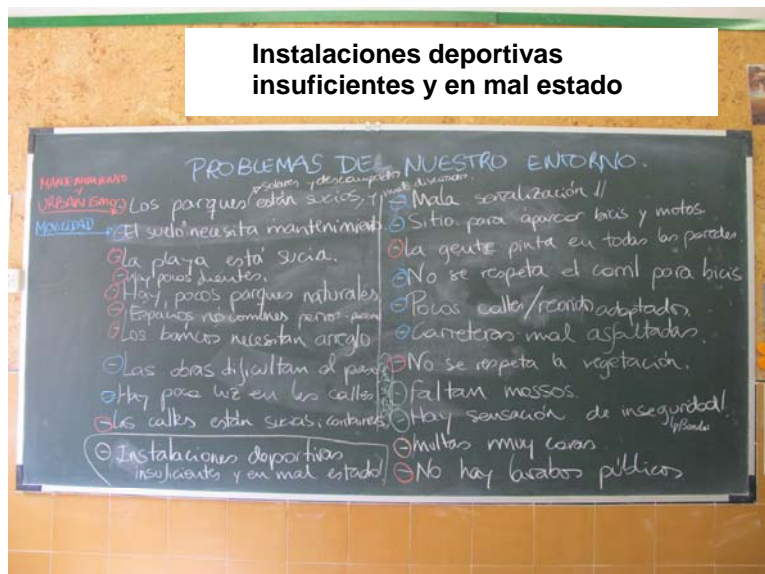 Instalaciones deportivas
insuficientes y en mal estado
PROBLEMAS DE NUESTRO ENTORNO.
MANTENIMIENTO
Y
URBANISMO
MOVILIDAD
solares y descampados
⊖ Los parques están sucios, y mal diseñados.
⊖ El suelo necesita mantenimiento.
⊖ La playa está sucia.
⊖ Hay pocos fuentes.
⊖ Hay pocos parques naturales
⊖ Espacios no comunes perros
⊖ Los bancos necesitan arreglo
⊖ Las obras dificultan el paso
⊖ Hay poca luz en las calles
⊖ Las calles están sucias, contenedores
⊖ Instalaciones deportivas
insuficientes y en mal estado
⊖ Mala señalización
⊖ Sitio para aparcar bicis y motos.
⊖ La gente pinta en todas las paredes.
⊖ No se respeta el carril para bicis
⊖ Pocas calles/recorrido adaptado.
⊖ Carreteras mal asfaltadas.
⊖ No se respeta la vegetación.
⊖ faltan mossos.
⊖ Hay sensación de inseguridad.
Bandas
⊖ multas muy caras
⊖ No hay lavabos públicos